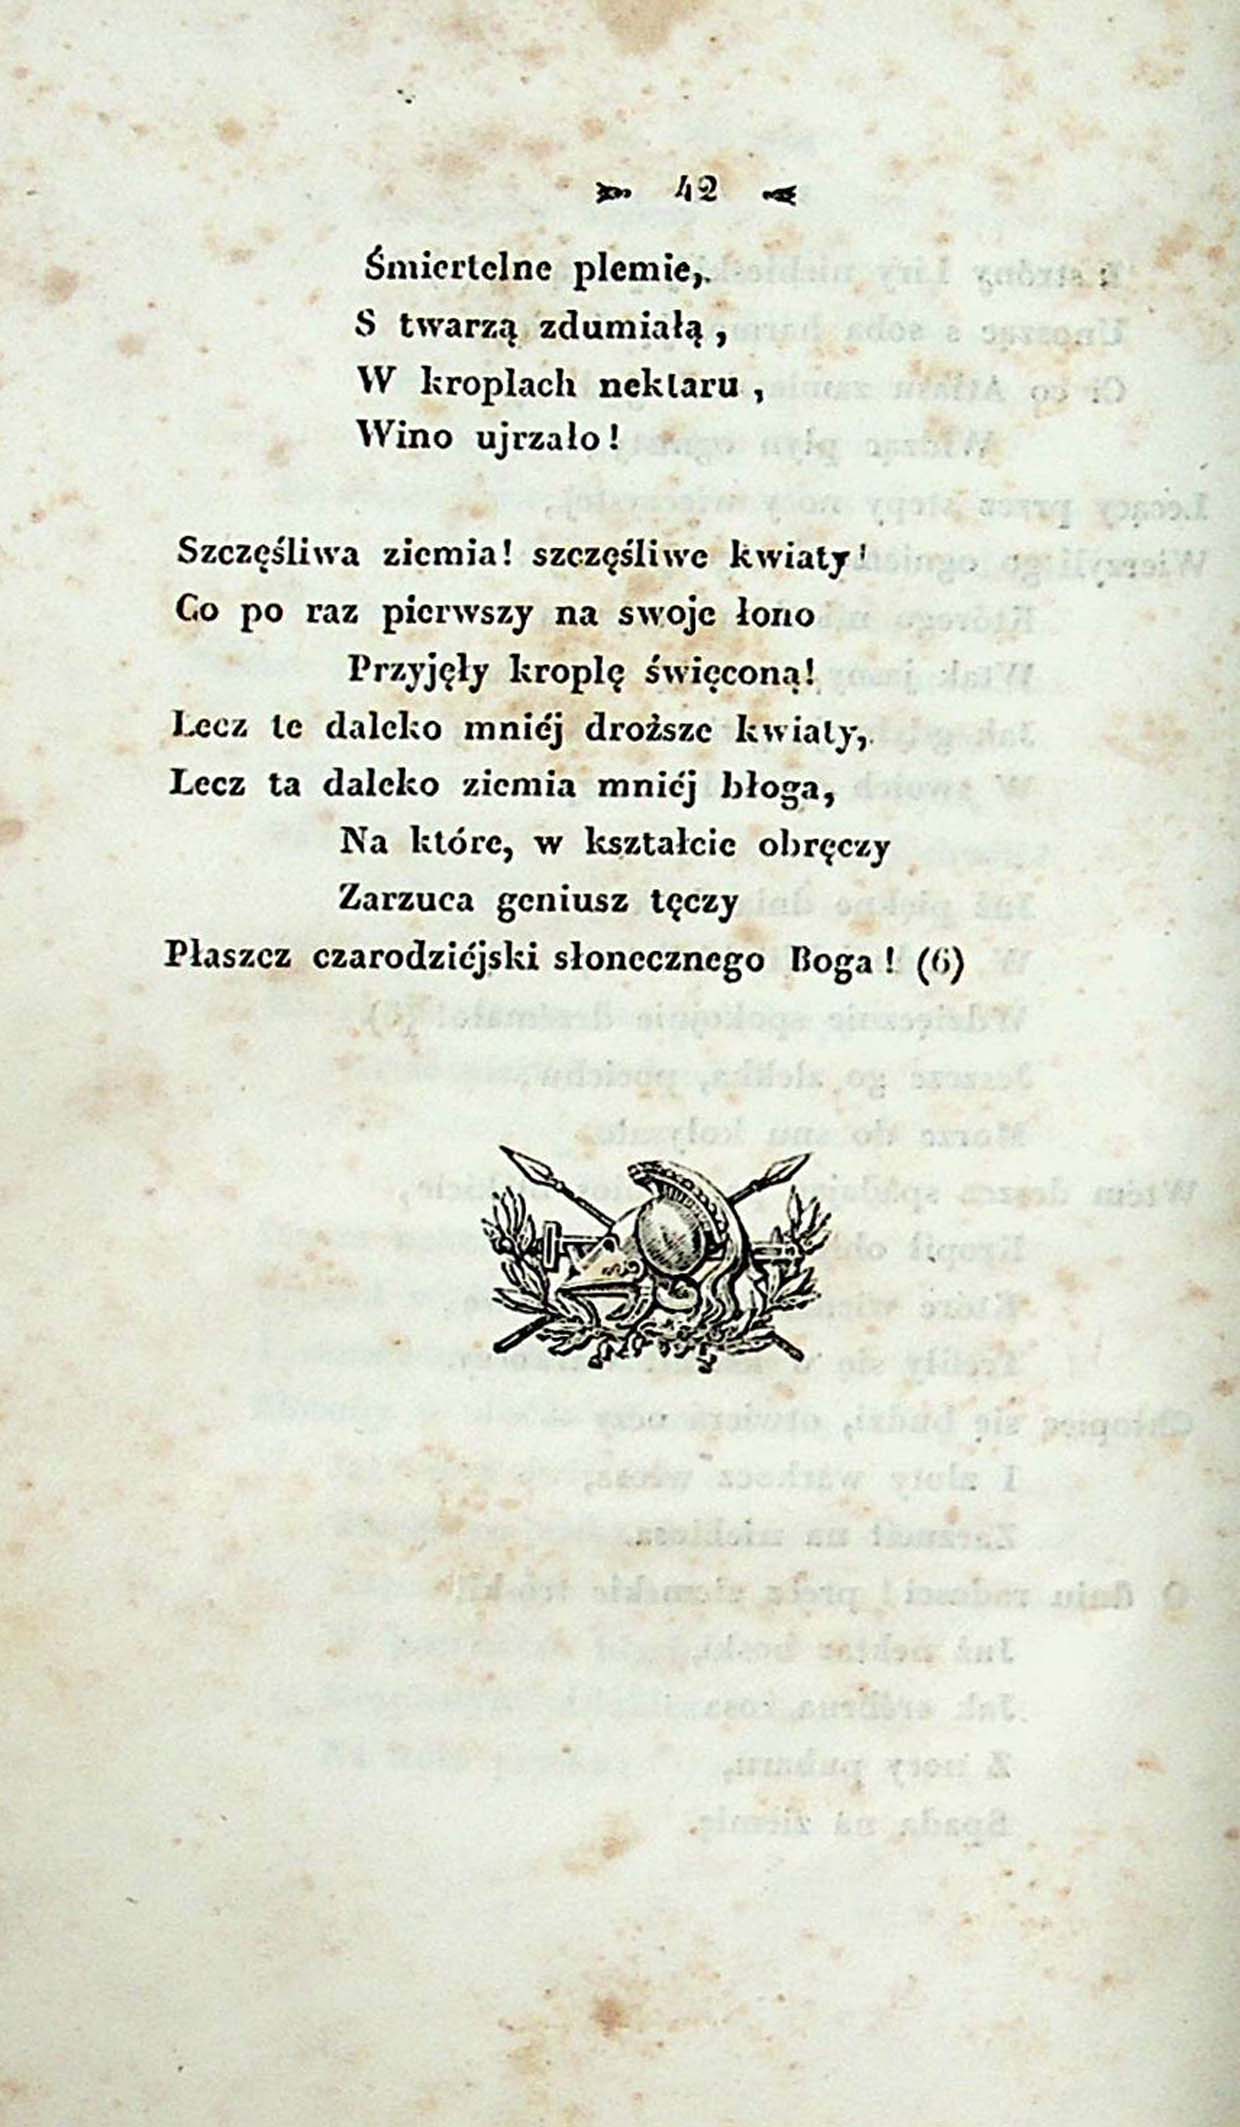 42
Śmiertelne plemie,
S twarzą zdumiałą,
W kroplach nektaru,
Wino ujrzało!
Szczęśliwa ziemia! szczęśliwe kwiaty!
Co po raz pierwszy na swoje łono
Przyjęły kroplę święconą!
Lecz te daleko mniéj droższe kwiaty,
Lecz ta daleko ziemia mniéj błoga,
Na które, w kształcie obręczy
Zarzuca geniusz tęczy
Płaszcz czarodziéjski słonecznego Boga! (6)